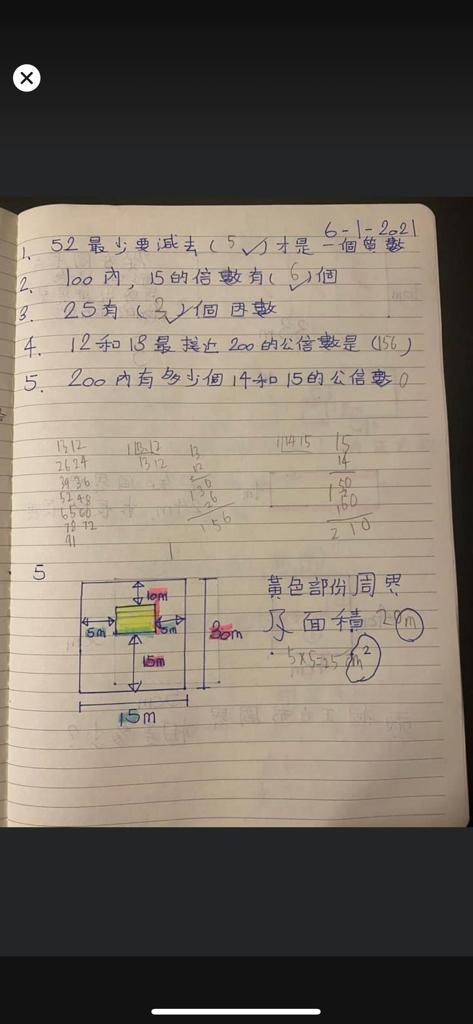 6-1-2021
1. 52最少要減去(5✓)才是一個質數
2. 100內,15的倍數有(6✓)個
3. 25有(3✓)個因數
4. 12和13最接近200的公倍數是(156)
5. 200內有多少個14和15的公倍數0
13 12
26 24
39 36
52 48
65 60
78 72
91
1|13 12
13 12
13
12
26
156
1|14 15
15
14
210
5
10m
5m
5m
30m
15m
15m
黃色部份周界
及面積20m
5×5=25m²